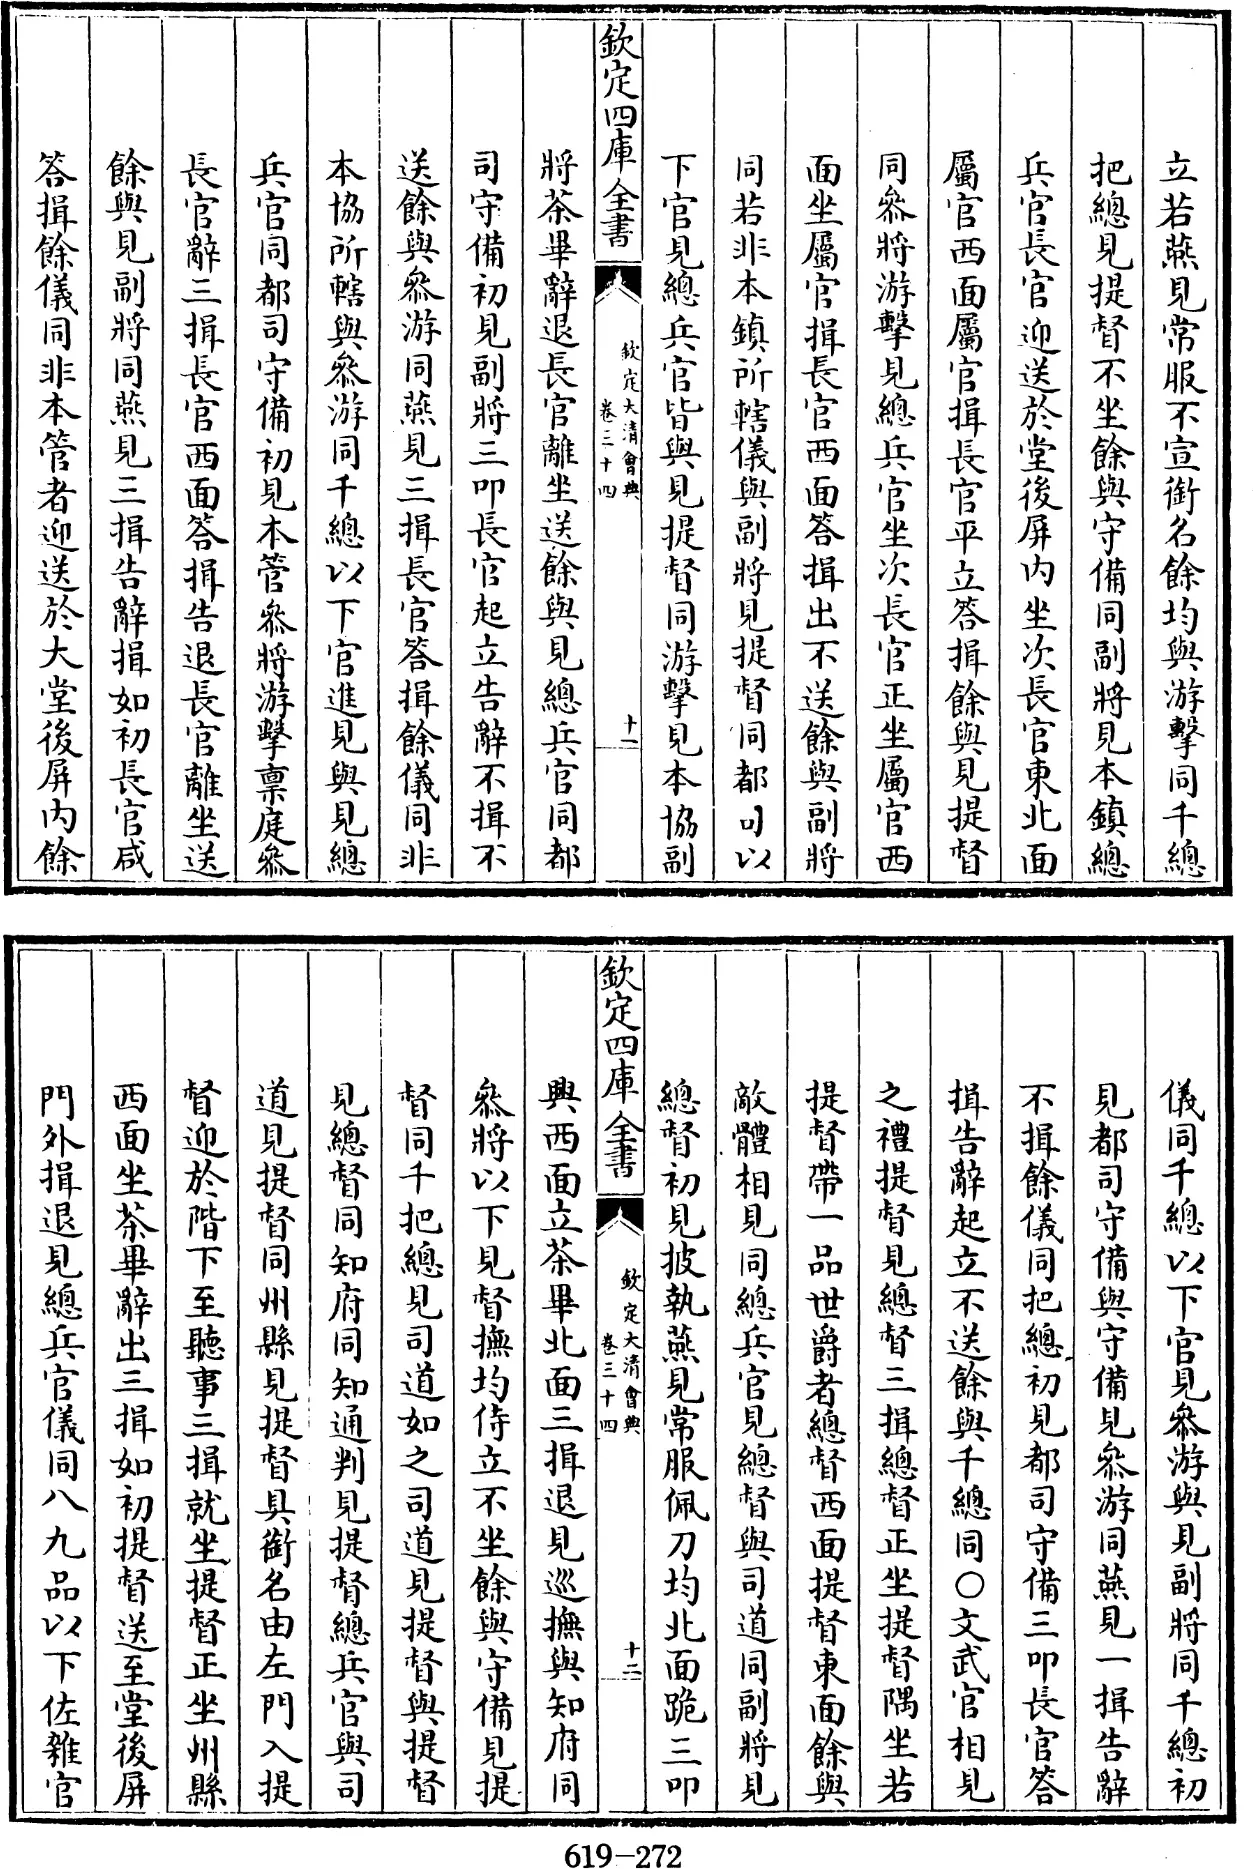 立若燕見常服不宣銜名餘均與游擊同千總
把總見提督不坐餘與守備同副將見本鎮總
兵官長官迎送於堂後屏内坐次長官東北面
屬官西面屬官揖長官平立答揖餘與見提督
同叅將游擊見總兵官坐次長官正坐屬官西
面坐屬官揖長官西面答揖出不送餘與副將
同若非本鎮所轄儀與副將見提督同都司以
下官見總兵官皆與見提督同游擊見本協副
欽定四庫全書
欽定大清會典
卷三十四
十一
將茶畢辭退長官離坐送餘與見總兵官同都
司守備初見副將三叩長官起立告辭不揖不
送餘與叅游同燕見三揖長官答揖餘儀同非
本協所轄與叅游同千總以下官進見與見總
兵官同都司守備初見本管叅將游擊稟庭叅
長官辭三揖長官西面答揖告退長官離坐送
餘與見副將同燕見三揖告辭揖如初長官咸
答揖餘儀同非本管者迎送於大堂後屏内餘
儀同千總以下官見叅游與見副將同千總初
見都司守備與守備見叅游同燕見一揖告辭
不揖餘儀同把總初見都司守備三叩長官答
揖告辭起立不送餘與千總同○文武官相見
之禮提督見總督三揖總督正坐提督隅坐若
提督帶一品世爵者總督西面提督東面餘與
敵體相見同總兵官見總督與司道同副將見
總督初見披執燕見常服佩刀均北面跪三叩
欽定四庫全書
欽定大清會典
卷三十四
十二
興西面立茶畢北面三揖退見巡撫與知府同
叅將以下見督撫均侍立不坐餘與守備見提
督同千把總見司道如之司道見提督與提督
見總督同知府同知通判見提督總兵官與司
道見提督同州縣見提督具銜名由左門入提
督迎於階下至聽事三揖就坐提督正坐州縣
西面坐茶畢辭出三揖如初提督送至堂後屏
門外揖退見總兵官儀同八九品以下佐雜官
619-272